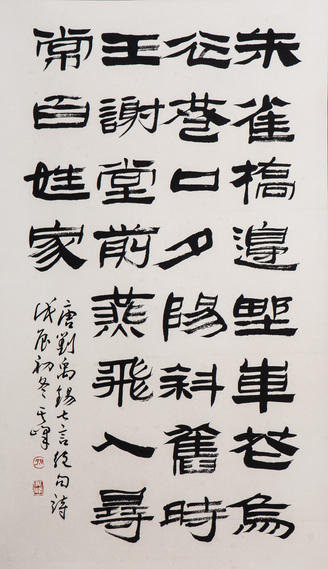 朱雀橋邊野草花烏
衣巷口夕陽斜舊時
王謝堂前燕飛入尋
常百姓家
唐劉禹錫七言絕句詩
戊辰初冬其峰